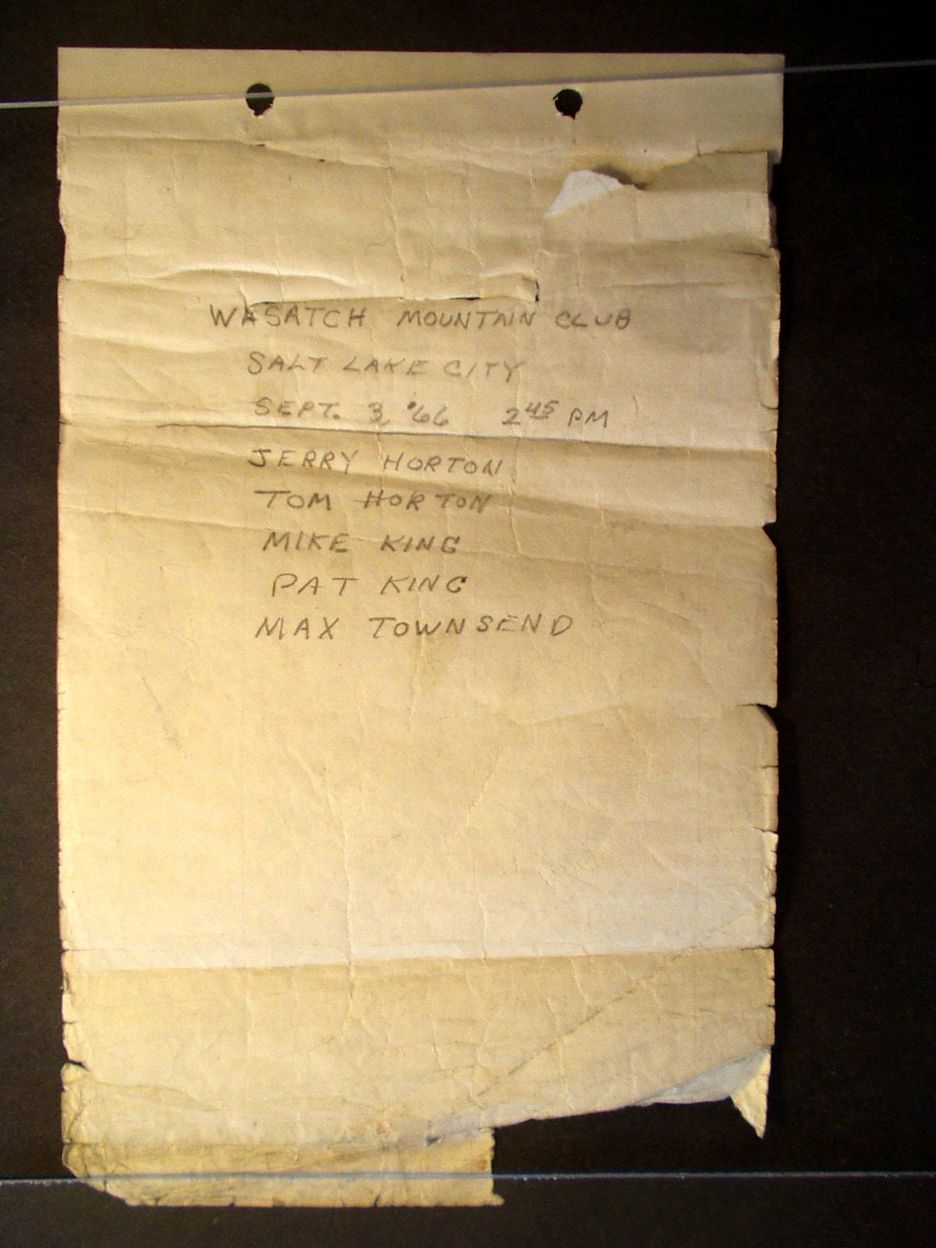 WASATCH MOUNTAIN CLUB
SALT LAKE CITY
SEPT. 3, '66 2 45 PM
JERRY HORTON
TOM HORTON
MIKE KING
PAT KING
MAX TOWNSEND